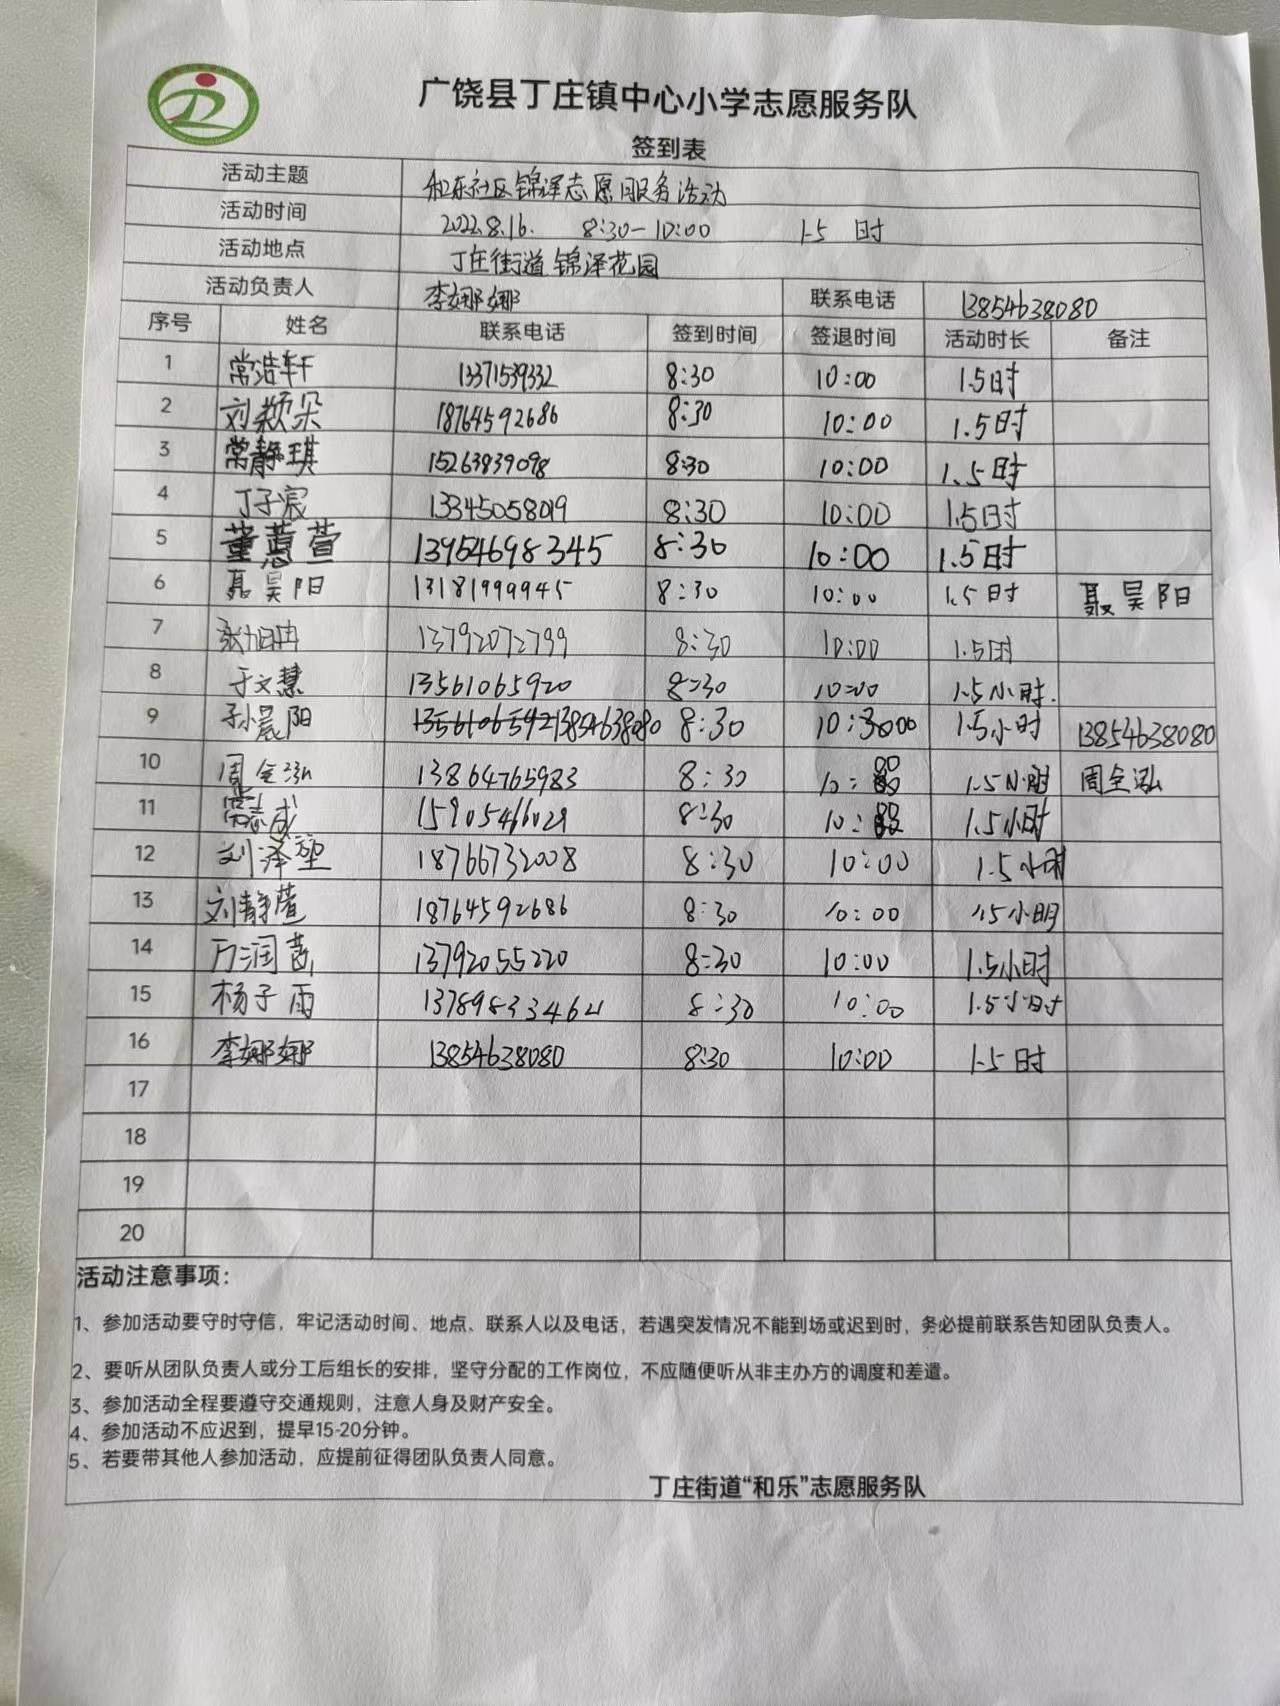 广饶县丁庄镇中心小学志愿服务队
签到表
活动主题 和乐社区锦泽志愿服务活动
活动时间 2022.8.16. 8:30-10:00 1.5 时
活动地点 丁庄街道锦泽花园
活动负责人 李娜娜 联系电话 13854638080
序号 姓名 联系电话 签到时间 签退时间 活动时长 备注
1 常浩轩 13371539332 8:30 10:00 1.5时
2 刘颖朵 18764592686 8:30 10:00 1.5时
3 常静琪 15263839098 8:30 10:00 1.5时
4 丁子宸 13345058019 8:30 10:00 1.5时
5 董慧萱 13954698345 8:30 10:00 1.5时
6 聂昊阳 13181999945 8:30 10:00 1.5时 聂昊阳
7 张旭冉 13792072799 8:30 10:00 1.5时
8 于文慧 13561065920 8:30 10:00 1.5小时.
9 孙晨阳 13854638080 8:30 10:00 1.5小时 13854638080
10 周全泓 13864765983 8:30 10:00 1.5小时 周全泓
11 常志成 15905466029 8:30 10: 1.5小时
12 刘泽堃 18766732008 8:30 10:00 1.5小时
13 刘静萱 18764592686 8:30 10:00 1.5小时
14 万润茜 13792055220 8:30 10:00 1.5小时
15 杨子雨 13789833464 8:30 10:00 1.5小时
16 李娜娜 13854638080 8:30 10:00 1.5时
17
18
19
20
活动注意事项：
1、参加活动要守时守信，牢记活动时间、地点、联系人以及电话，若遇突发情况不能到场或迟到时，务必提前联系告知团队负责人。
2、要听从团队负责人或分工后组长的安排，坚守分配的工作岗位，不应随便听从非主办方的调度和差遣。
3、参加活动全程要遵守交通规则，注意人身及财产安全。
4、参加活动不应迟到，提早15-20分钟。
5、若要带其他人参加活动，应提前征得团队负责人同意。
丁庄街道“和乐”志愿服务队